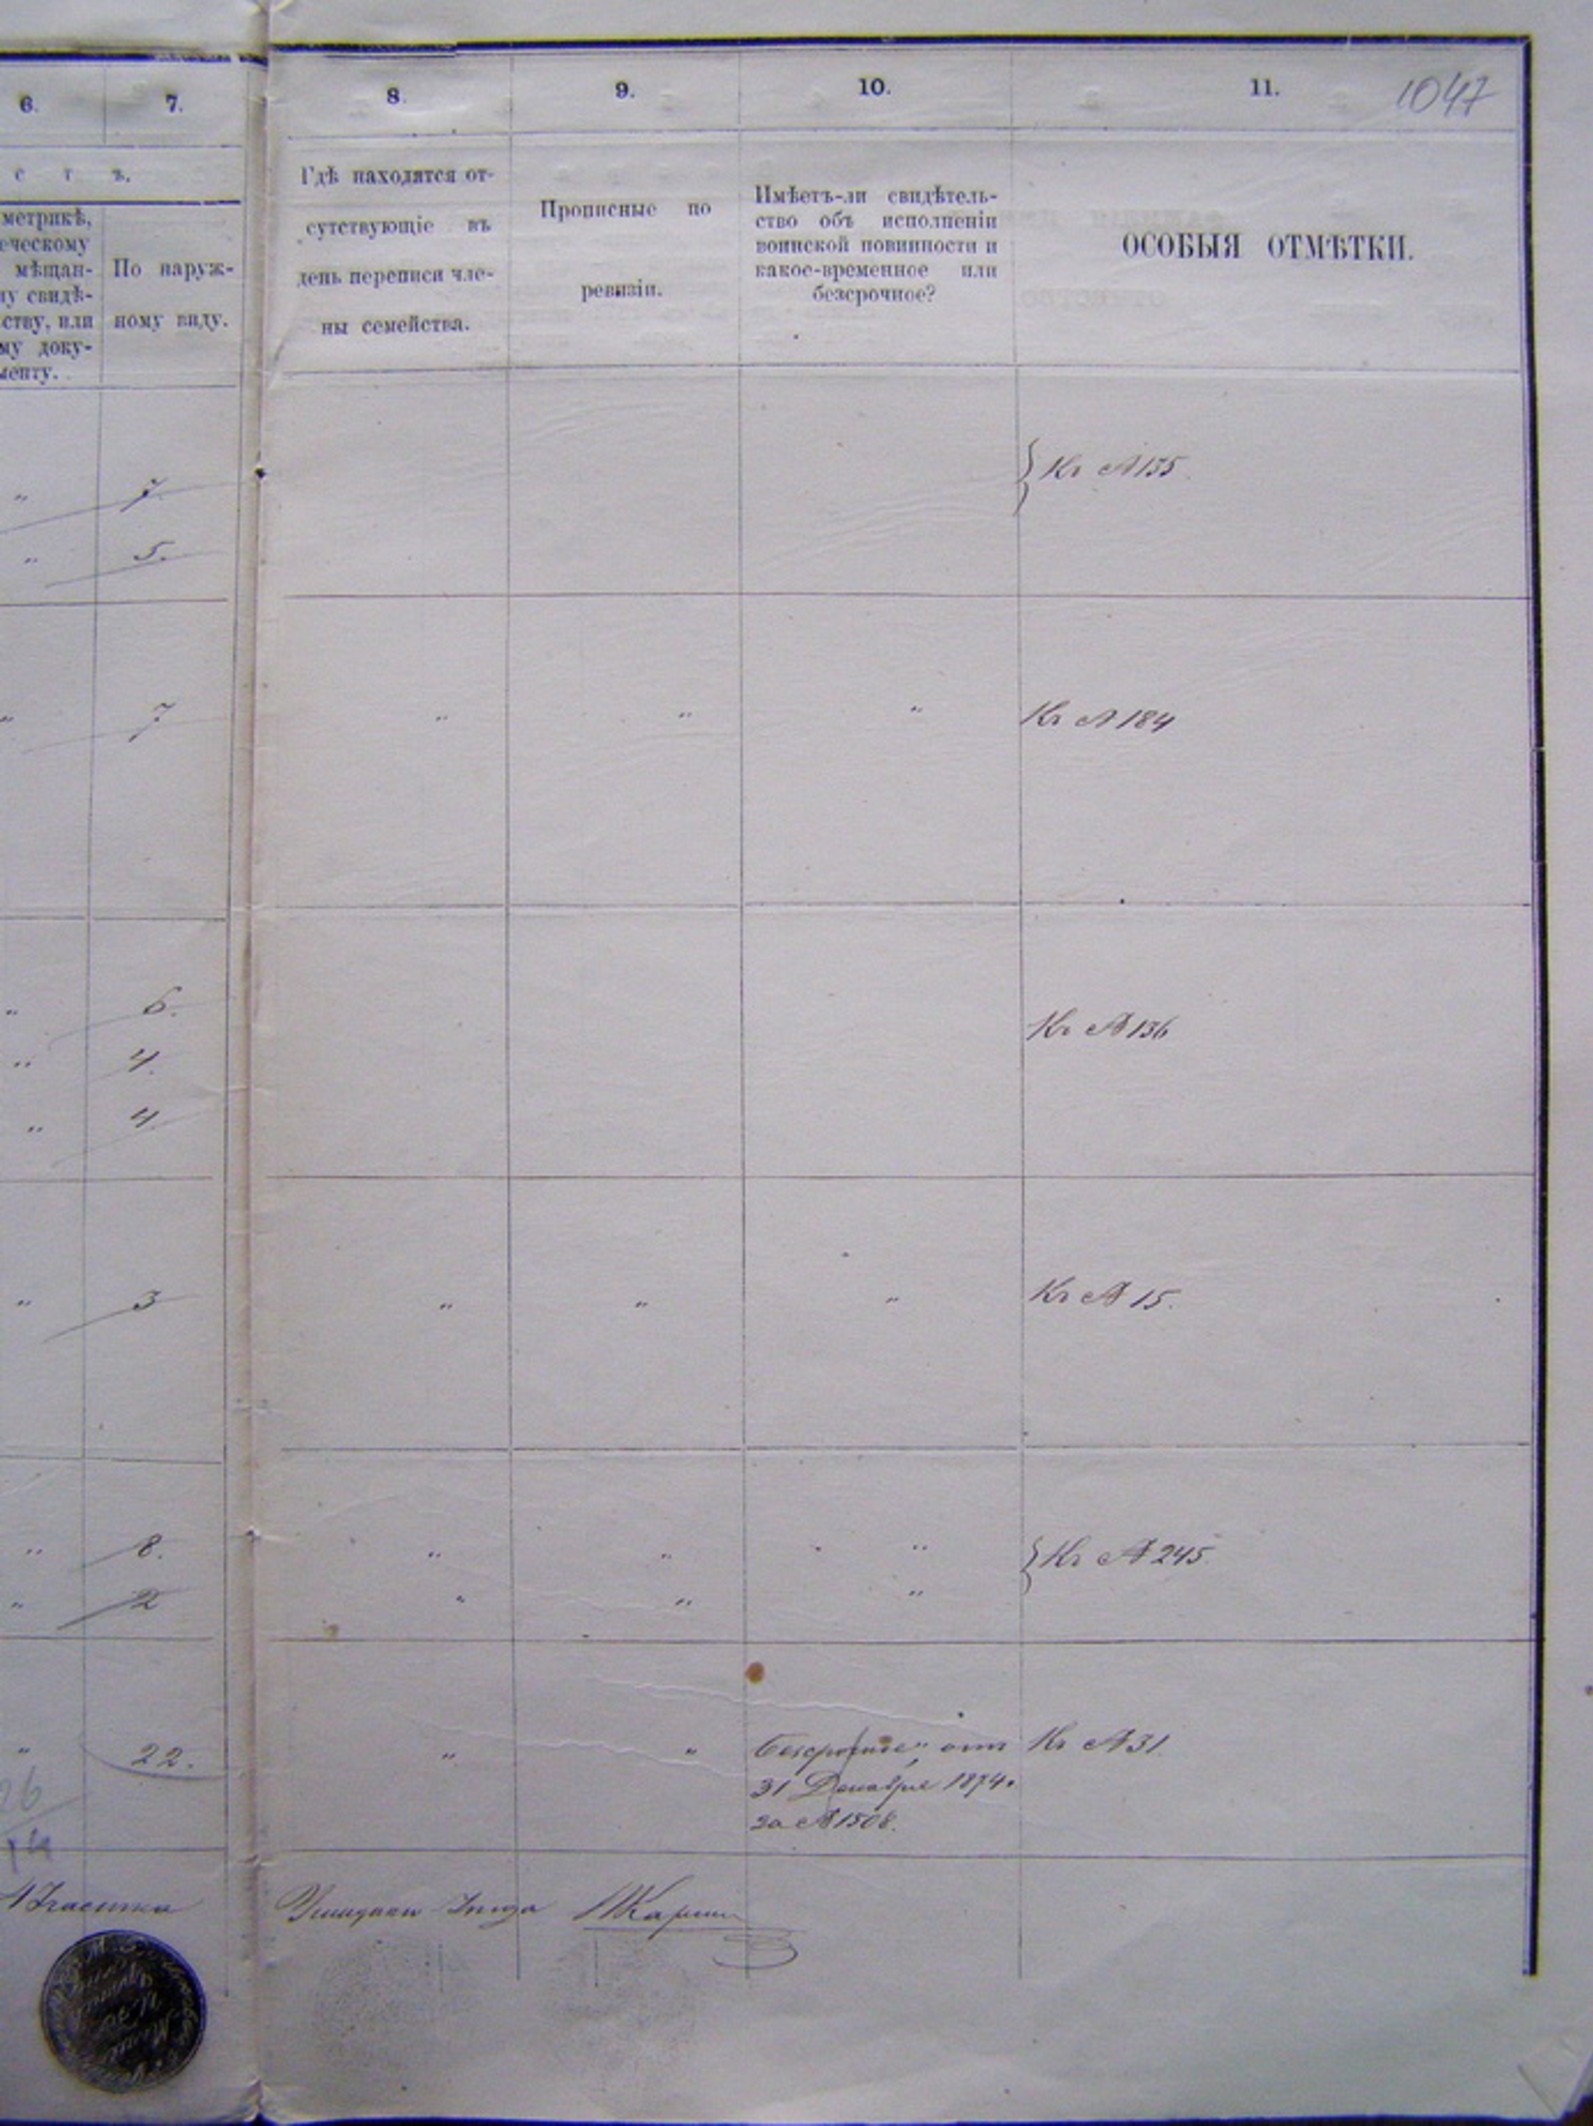 6.
7.
8.
9.
10.
11.
1047
с т ъ.
метрикѣ,
еческому
мѣщан-
у свидѣ-
ству, или
му доку-
менту.
По наруж-
ному виду.
Гдѣ находятся от-
сутствующіе въ
день переписи чле-
ны семейства.
Прописные по
ревизіи.
Имѣетъ-ли свидѣтель-
ство объ исполненіи
воинской повинности и
какое-временное или
безсрочное?
ОСОБЫЯ ОТМѢТКИ.
" 7. Кг № 135.
" 5.
" 7 " " " Кг № 184
" 6. Кг № 136
" 4.
" 4
" 3 " " " Кг № 15.
" 8. " " " Кг № 245.
" 2 " " "
" 22. " " отъ Кг № 31.
31 Декабря 1874.
за № 1508.
26
14